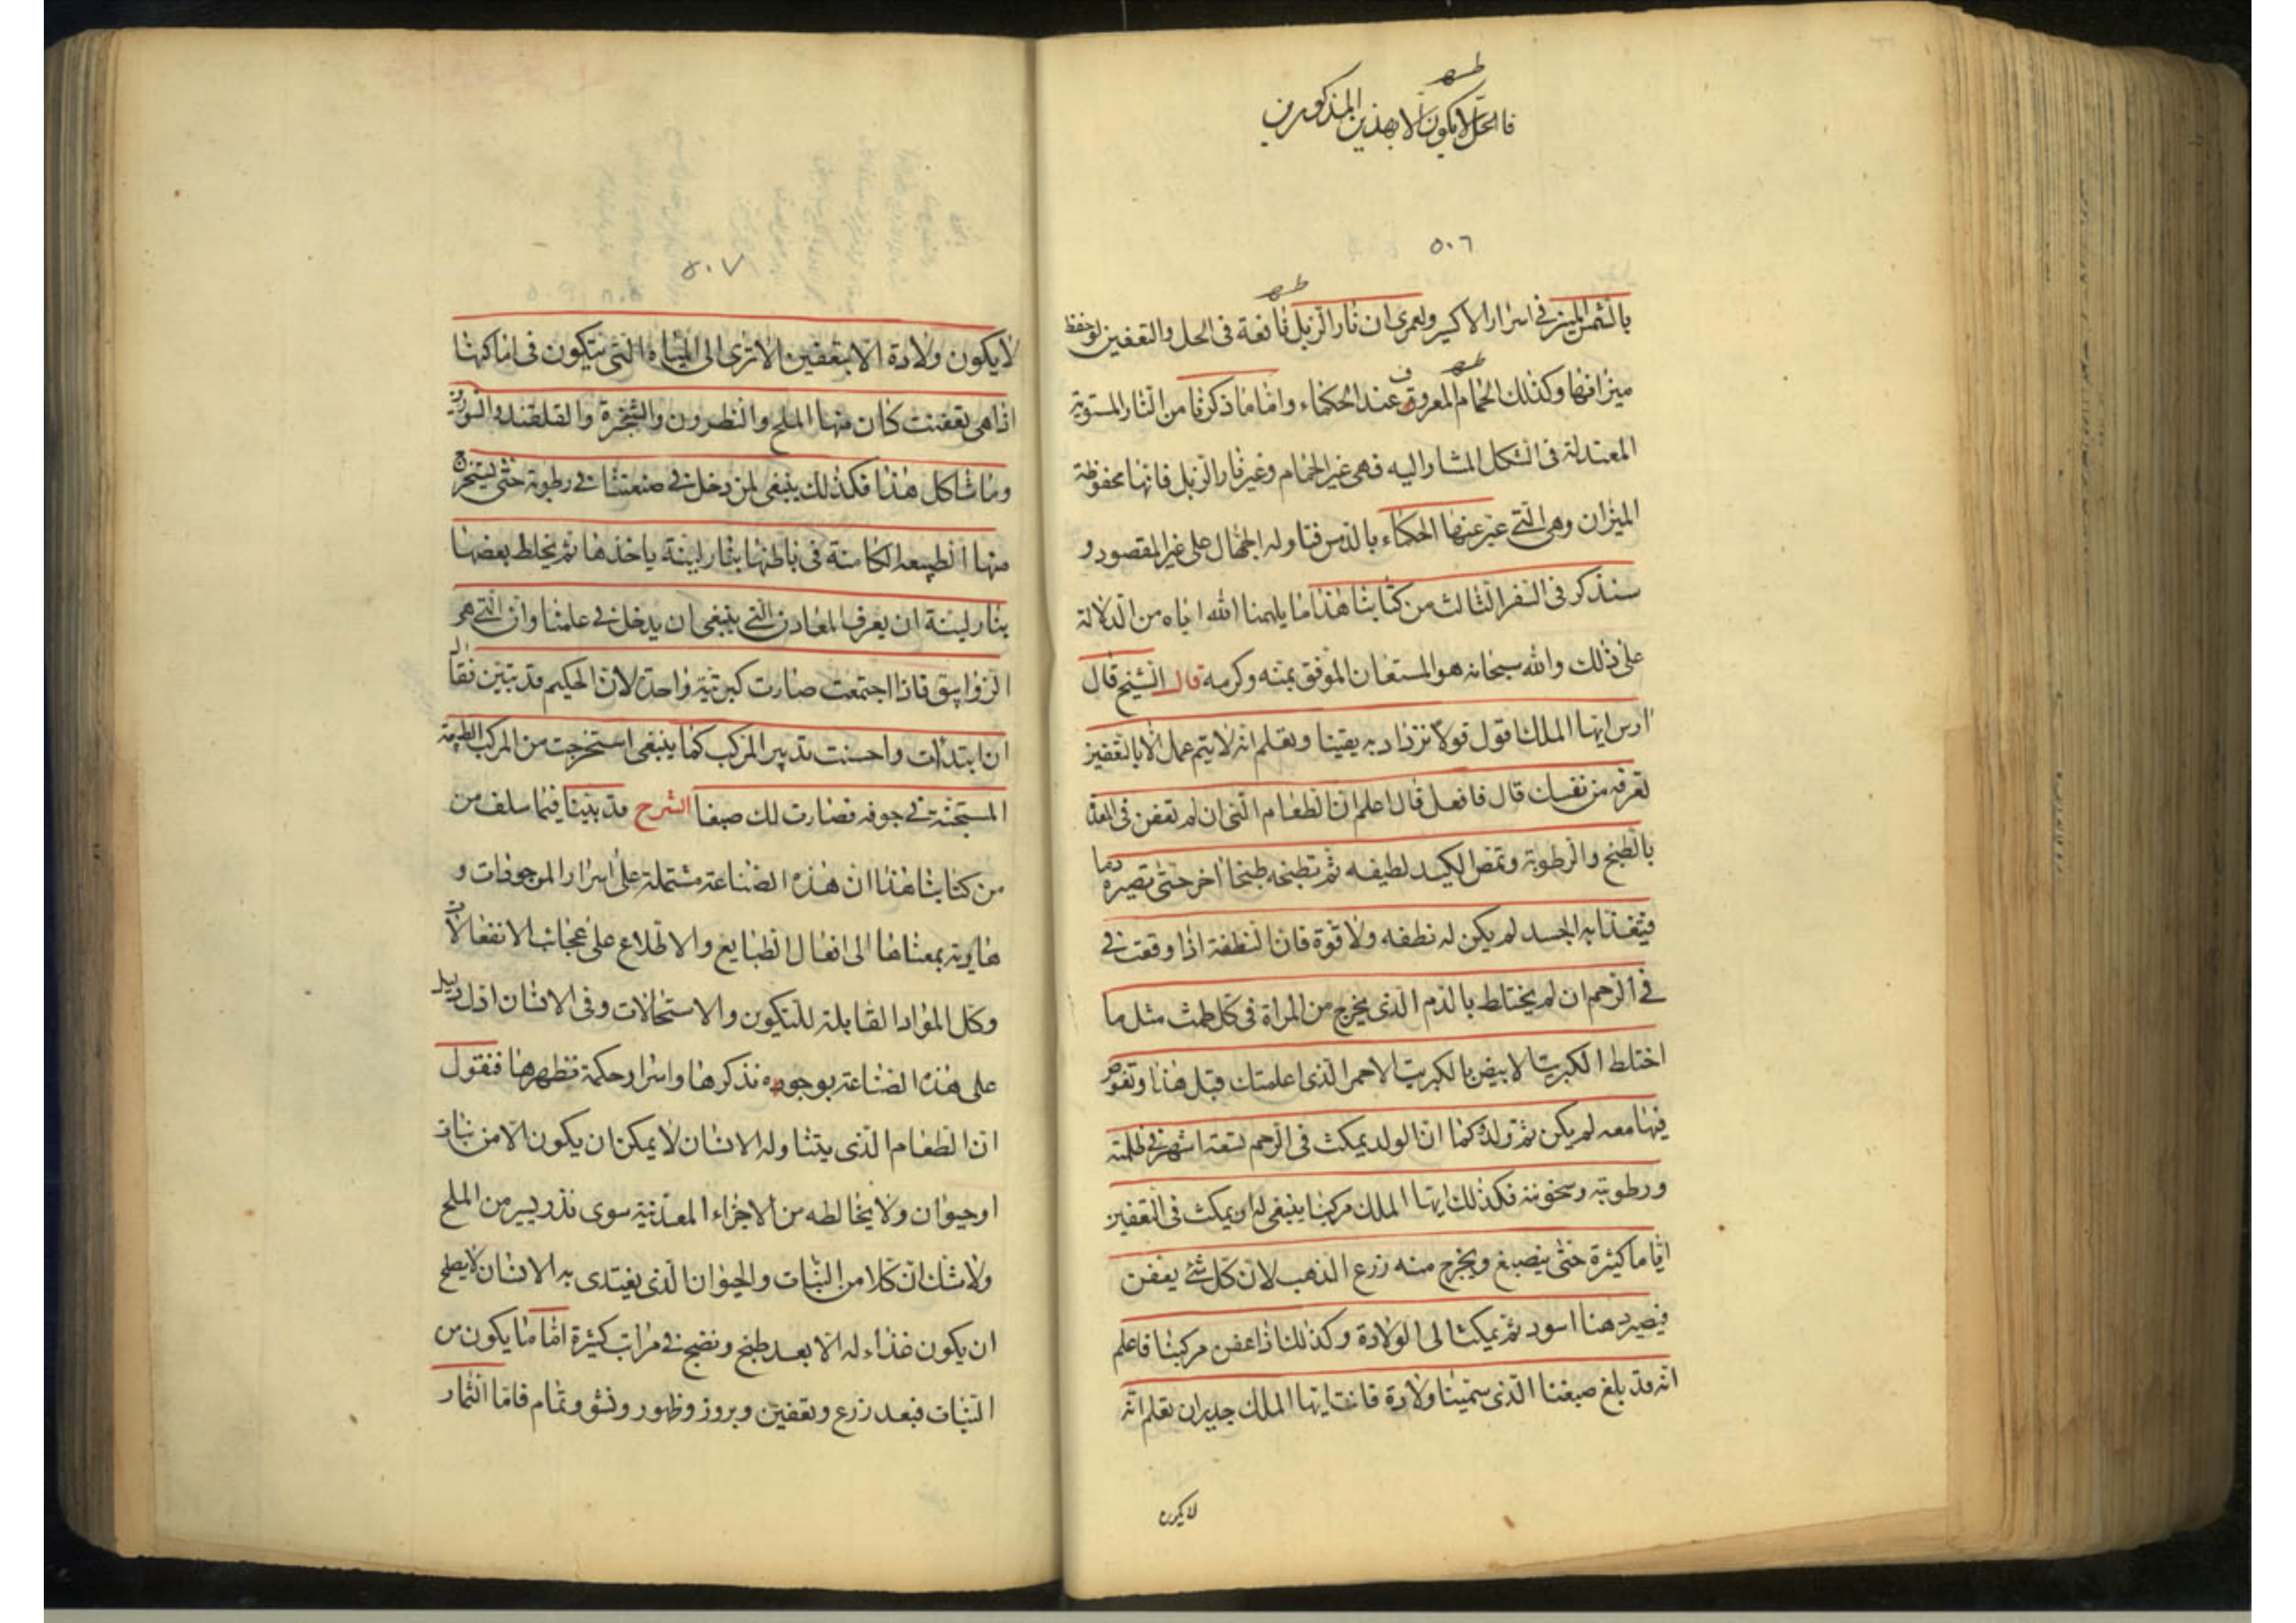 فالحل لا يكون الا بهذين المذكورين
٥٠٦
بالشمس المنير فى اسرار الاكسير ولعمرى ان نار الزبل نافعة فى الحل والتعفين لو حفظ
ميزانها وكذلك الحمام المعروف عند الحكماء واما ما ذكرنا من النار المستوية
المعتدلة فى الشكل المشار اليه فهى غير الحمام وغير نار الزبل فانها محفوظة
الميزان وهى التى عبر عنها الحكماء بالدمس فتاوله الجهال على غير المقصود و
سنذكر فى السفر الثالث من كتابنا هذا ما يلهمنا الله اياه من الدلالة
على ذلك والله سبحانه هو المستعان الموفق بمنه وكرمه قال الشيخ قال
ارس ايها الملك اقول قولا تزداد به يقينا وتعلم انه لا يتم عمل الا بالتعفين
تعرفه من نفسك قال فافعل قال اعلم ان الطعام الذى ان لم تعفن فى المعدة
بالطبخ والرطوبة وتمص الكبد لطيفه ثم تطبخه طبخا اخر حتى تصيره دما
فيتغذا به الجسد لم يكن له نطفه ولا قوة فان النطفة اذا وقعت فى
فى الرحم ان لم يختلط بالدم الذى يخرج من المراة فى كل طمث مثل ما
اختلط الكبريت الابيض بالكبريت الاحمر الذى اعلمتك قبل هذا وتعفن
فيها معه لم يكن ثم ولد كما ان الولد يمكث فى الرحم تسعة اشهر فى ظلمته
ورطوبته وسخونته فكذلك ايها الملك مركبنا ينبغى له ان يمكث فى التعفين
اياما كثيرة حتى ينصبغ ويخرج منه زرع الذهب لان كل شئ يعفن
فيصير دهنا اسود ثم يمكث الى الولادة وكذلك اذا عفن مركبنا فاعلم
انه قد بلغ صبغنا الذى سمينا ولادة فانت ايها الملك جدير ان تعلم انه
لا يكون
٥٠٧
لا يكون ولادة الا بتعفين الا ترى الى المياه التى يتكون فى اماكنها
اذا هى تعفنت كان منها الملح والنطرون والشخرة والقلقند والسورين
وما شاكل هذا فكذلك ينبغى لمن دخل فى صنعتنا فى رطوبة حتى ليستخرج
منها الطبيعة الكامنة فى باطنها بنار لينة ياخذها ثم يخلط بعضها
بنار لينة ان يعرف المعادن التى ينبغى ان يدخل فى علمنا وان التى هى
الزواييق فاذا اجتمعت صارت كبريتية واحدة لان الحكيم قد تبين فقال
ان ابتدات واحسنت تدبير المركب كما ينبغى استخرجت من المركب الطبيعة
المستجنة فى جوفه فصارت لك صبغا الشرح قد بينا فيما سلف من
من كتابنا هذا ان هذه الصناعة مشتملة على اسرار الموجودات و
هاوية بمعناها الى افعال الطبايع والاطلاع على عجائب الانفعالات
وكل المواد القابلة للتكوين والاستحالات وفى الانسان ادل دليل
على هذه الصناعة بوجوه نذكرها واسرار حكمة نظهرها فنقول
ان الطعام الذى يتناوله الانسان لا يمكن ان يكون الا من نبات
او حيوان ولا يخالطه من الاجزاء المعدنية سوى نذر يسير من الملح
ولا شك ان كلا من النبات والحيوان الذى يغتدى به الانسان لا يصلح
ان يكون غذاء له الا بعد طبخ ونضج فى مراتب كثيرة اما ما يكون من
النبات فبعد زرع وتعفين وبروز وظهور ونشو وتمام فاما الثمار